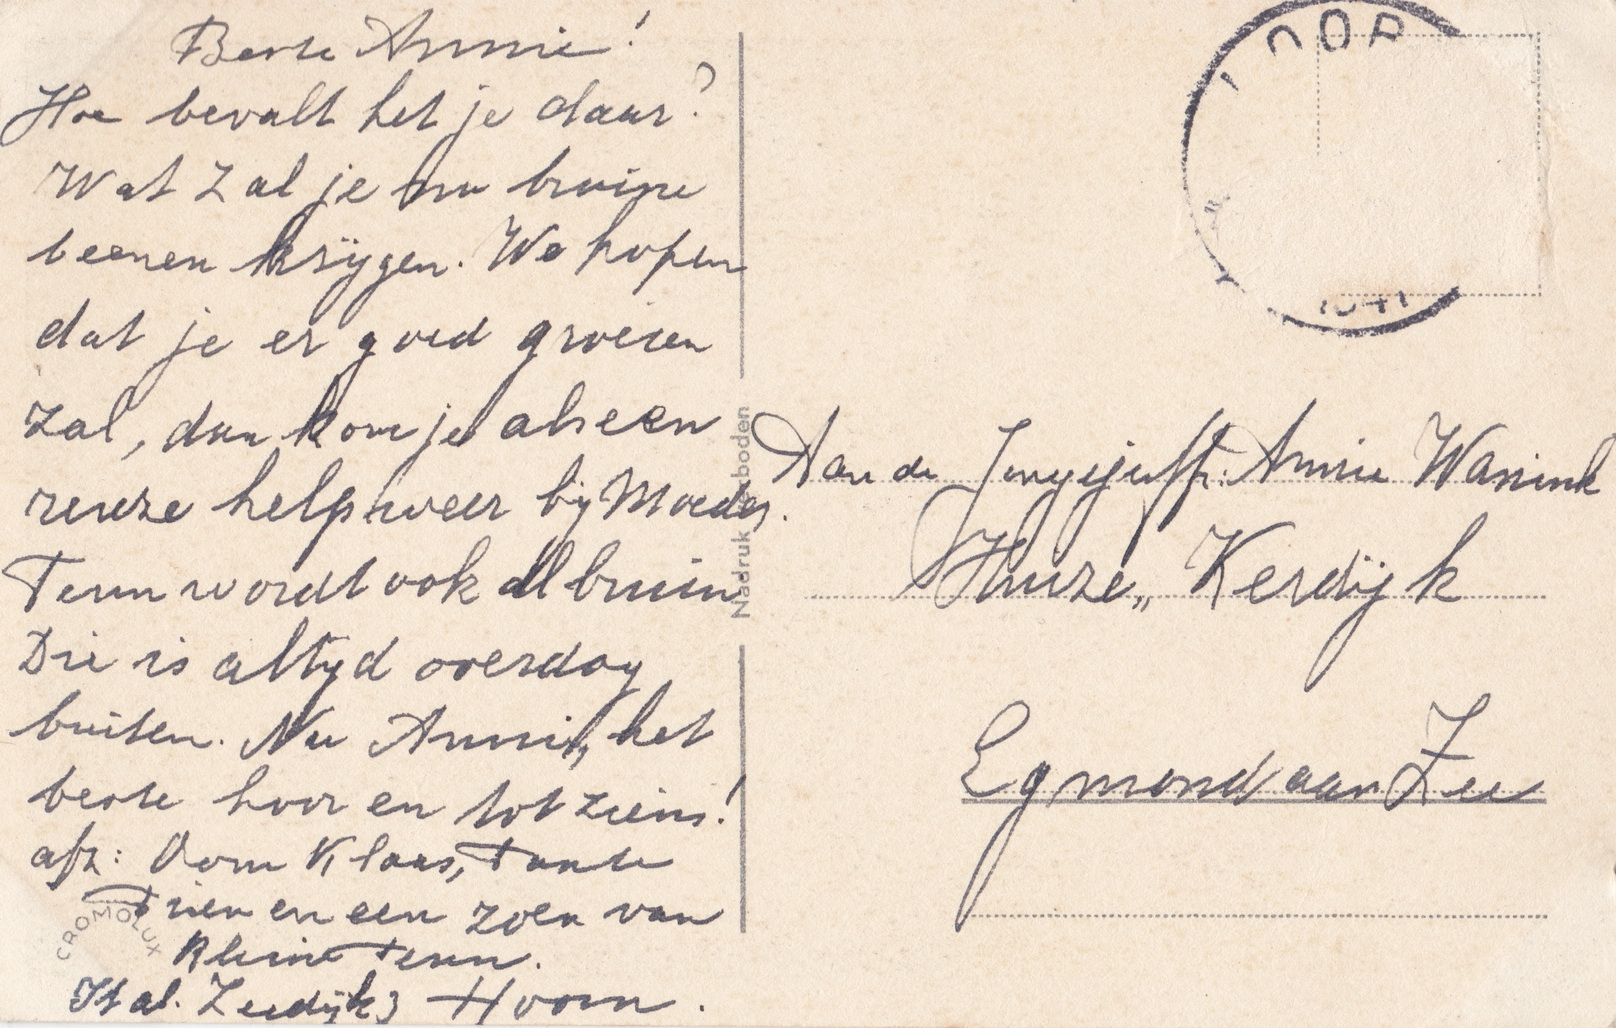 Beste Annie!
Hoe bevalt het je daar?
Wat zal je nu bruine
beenen krijgen. We hopen
dat je er goed groeien
zal, dan kom je als een
reuze help weer bij Moeder.
Teun wordt ook al bruin
Die is altijd overdag
buiten. Nu Annie, het
beste hoor en tot ziens!
afz: Oom Klaas, Tante
Trien en een zoen van
Kleine Teun.
Ital. Zeedijk 3 Hoorn.
CROMOLUX
Nadruk verboden
HOORN
1941
Aan de Jongejuffr: Annie Wanink
Huize „Kerdijk
Egmond aan Zee